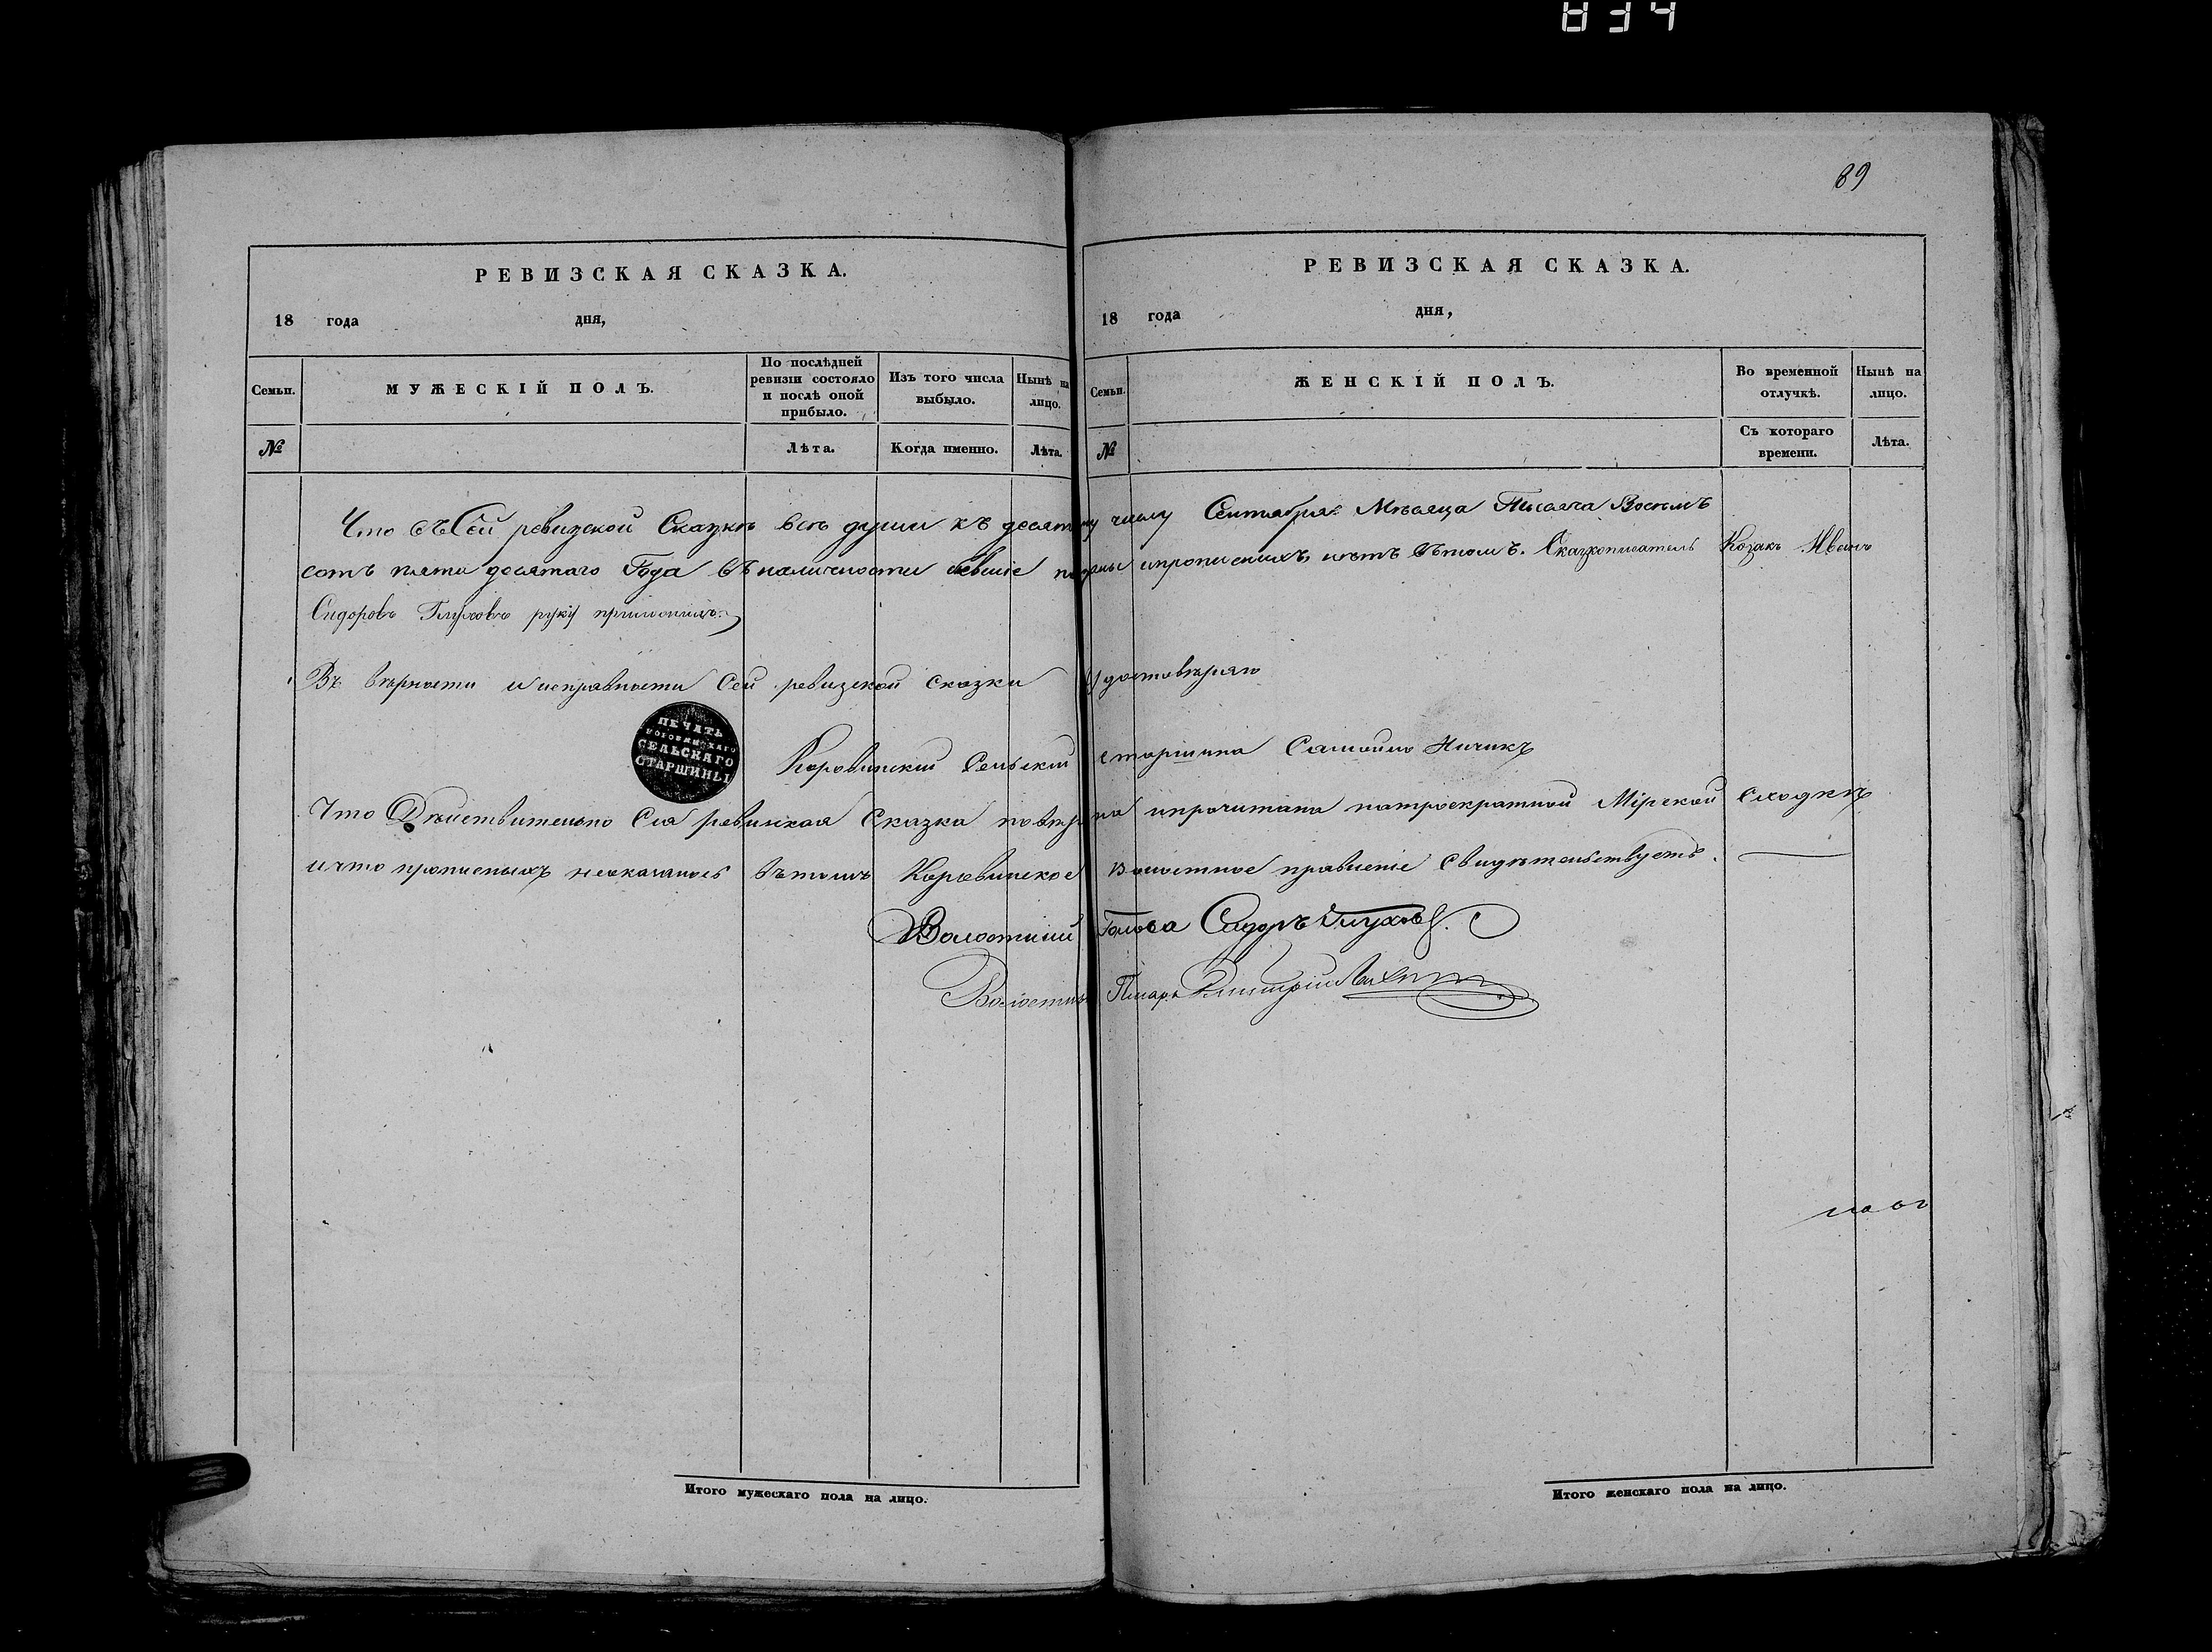 834
89
РЕВИЗСКАЯ СКАЗКА.
18 года дня,
Семьи.
МУЖЕСКІЙ ПОЛЪ.
По послѣдней ревизіи состояло и послѣ оной прибыло.
Изъ того числа выбыло.
Нынѣ на лицо.
№
Лѣта.
Когда именно.
Лѣта.
РЕВИЗСКАЯ СКАЗКА.
18 года дня,
Семьи.
ЖЕНСКІЙ ПОЛЪ.
Во временной отлучкѣ.
Нынѣ на лицо.
№
Съ котораго времени.
Лѣта.
Что въ Сей ревизской Сказкѣ всѣ души къ десятому числу Сентября Мѣсяца Тысяча Восемъ
сотъ пяти десятаго Года въ наличности бывшіе показаны и прописныхъ нѣтъ въ томъ. Сказкописатель Козакъ Иванъ
Сидоровъ Глуховъ руку приложилъ.
Въ вѣрности и исправности Сей ревизской сказки Удостовѣряю
ПЕЧАТЬ
СЕЛЬСКАГО
СТАРШИНЫ
Коровинскій Сельскій старшина Самойло Ничикъ
Что Дѣйствительно Сія ревизская Сказка повѣрена и прочитана на троекратной Мірской сходкѣ
и что прописныхъ неоказалось въ томъ Коровинское волостное правленіе свидѣтельствуетъ.
Волостный Голова Сидоръ Глуховъ.
Волостный Писарь Димитрій
Итого мужескаго пола на лицо.
Итого женскаго пола на лицо.